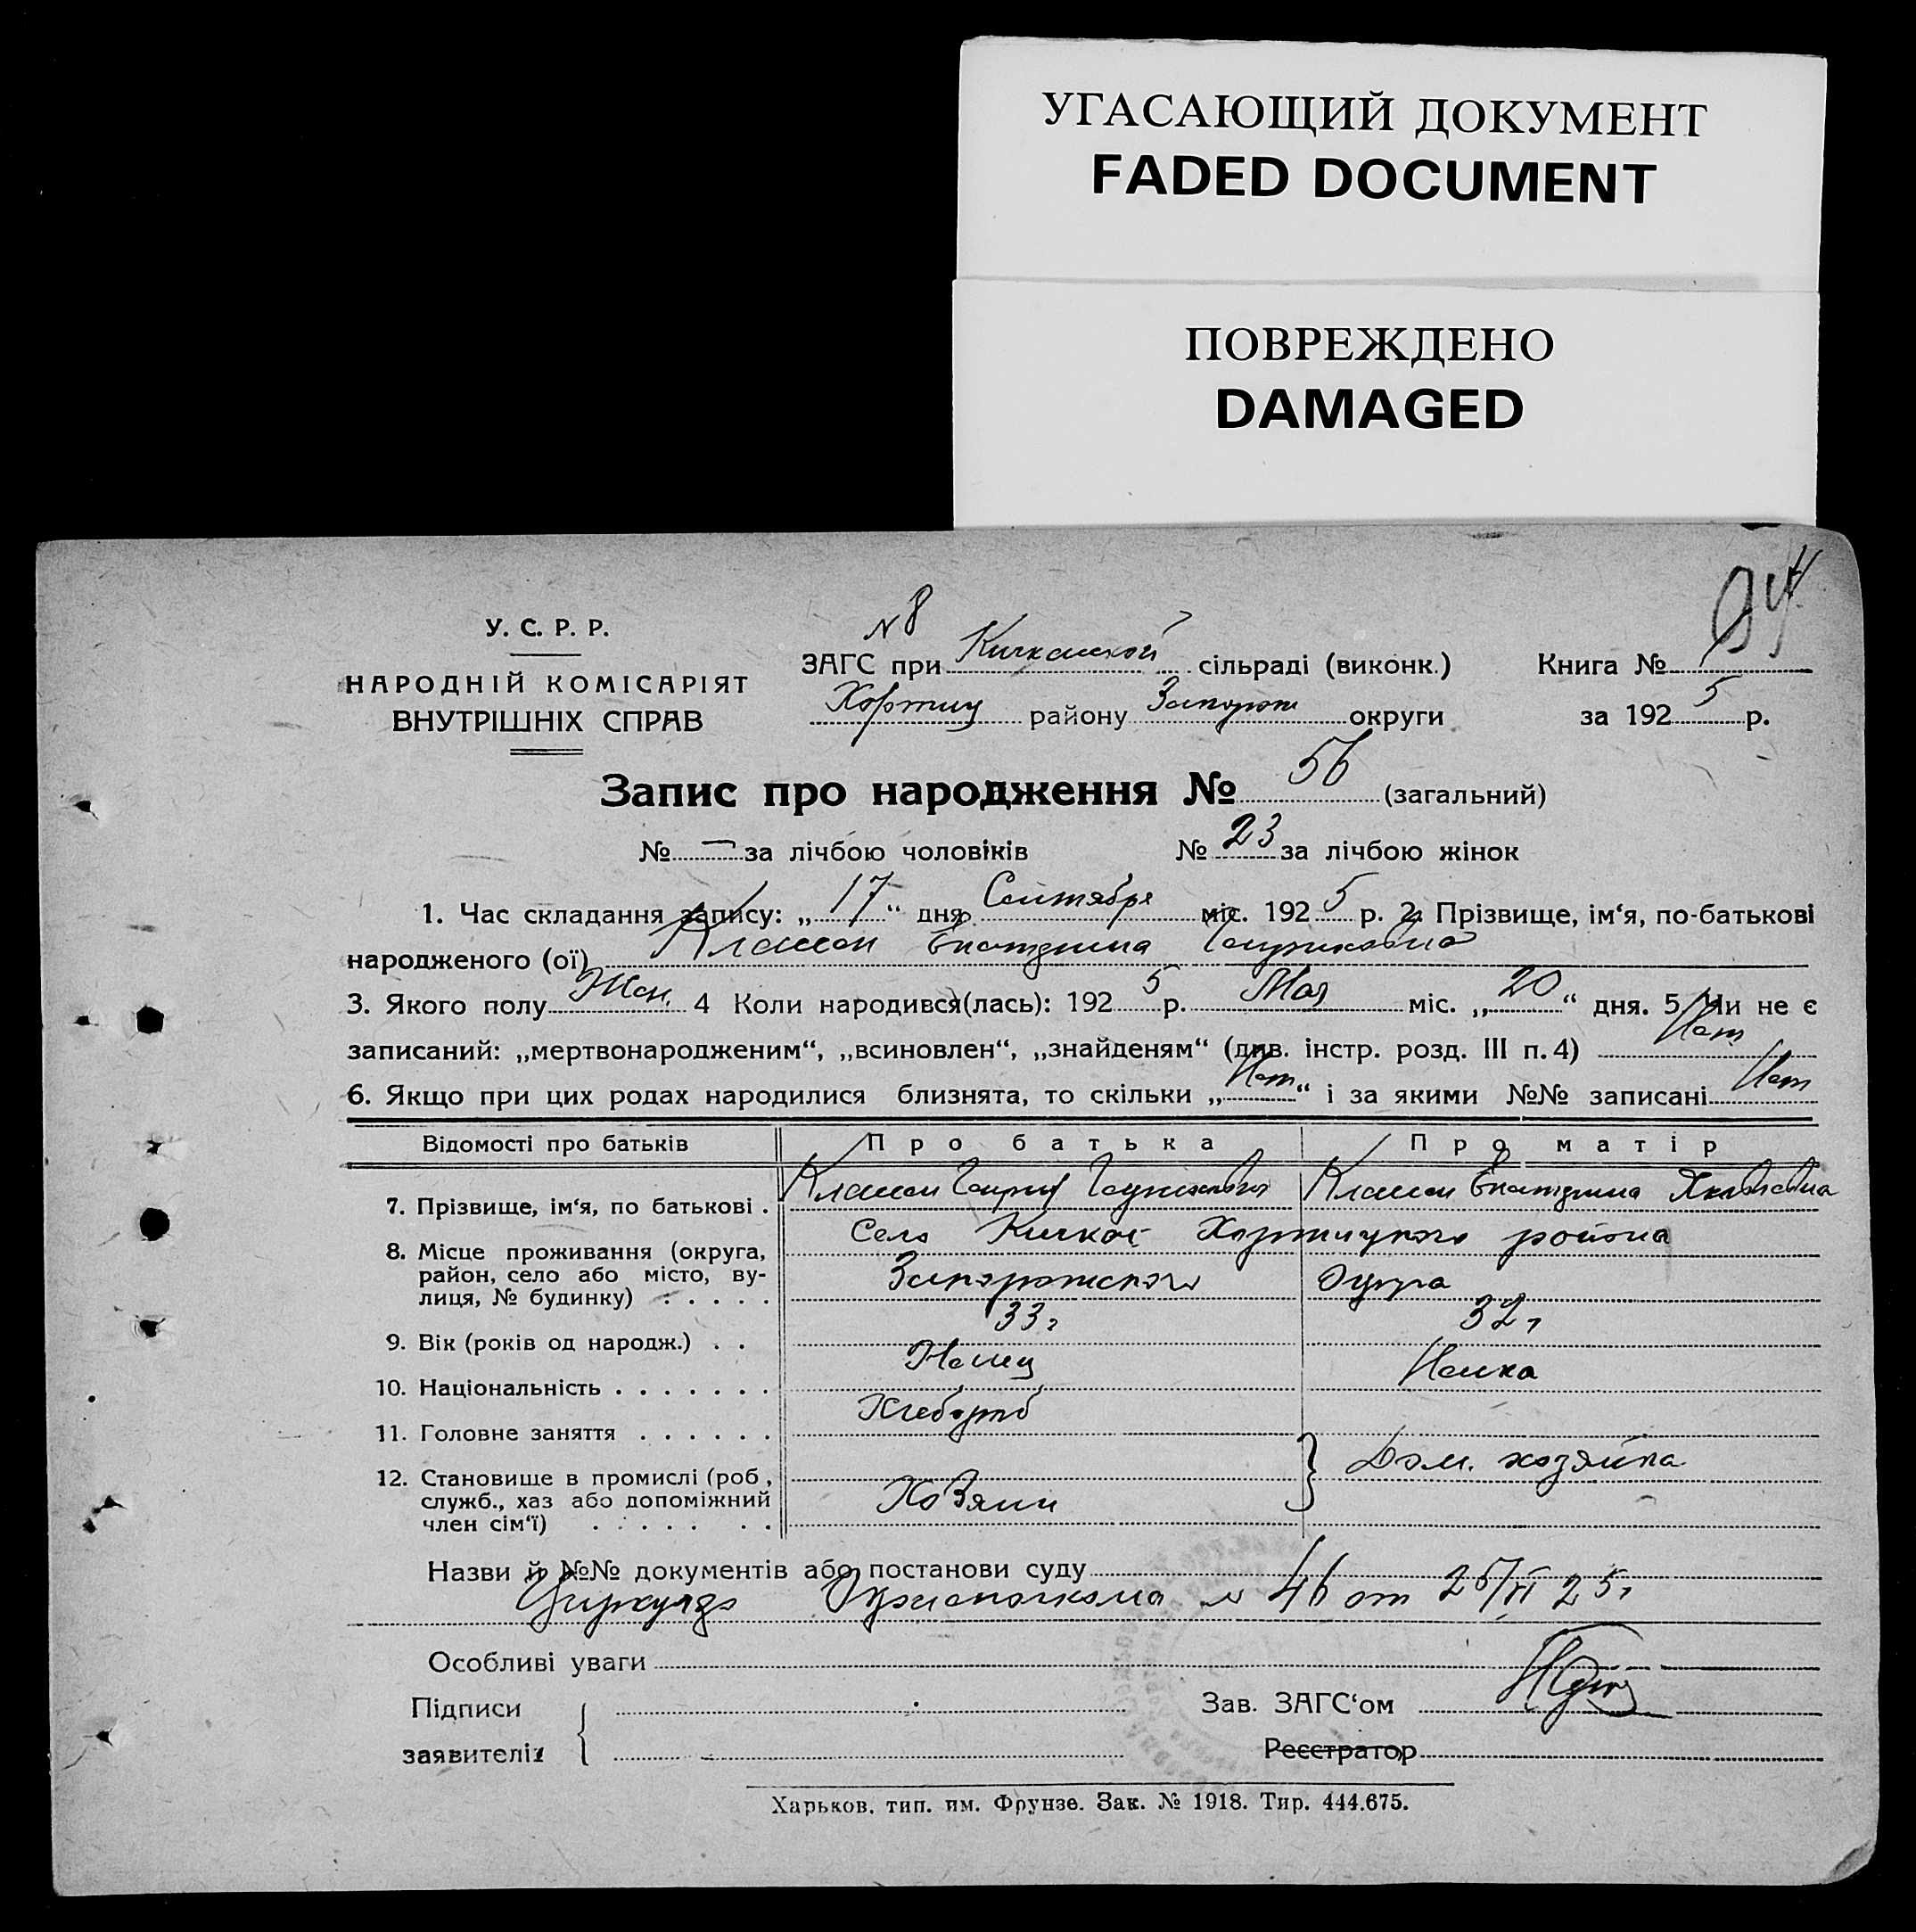 УГАСАЮЩИЙ ДОКУМЕНТ
FADED DOCUMENT
ПОВРЕЖДЕНО
DAMAGED
У. С. Р. Р.
НАРОДНІЙ КОМІСАРІЯТ
ВНУТРІШНІХ СПРАВ
N 8
ЗАГС при Кичкасской сільраді (виконк.)
Хортиц району Запорож округи
Книга №
за 1925 р.
Запис про народження № 56 (загальний)
№ — за лічбою чоловіків № 23 за лічбою жінок
1. Час складання запису: „17“ дня Сентября міс. 1925 р. 2. Прізвище, ім‘я, по-батькові
народженого (ої) Классен Екатерина Генриховна
3. Якого полу Жен. 4 Коли народився(лась): 1925 р. Мая міс. „20“ дня. 5. Чи не є
записаний: „мертвонародженим“, „всиновлен“, „знайденям“ (див. інстр. розд. III п. 4) Нет
6. Якщо при цих родах народилися близнята, то скільки „Нет“ і за якими №№ записані Нет
Відомості про батьків Про батька Про матір
7. Прізвище, ім‘я, по батькові . Классен Генрих Генрихович Классен Екатерина Яковлевна
8. Місце проживання (округа, Село Кичкас Хортицкого района
район, село або місто, ву-
лиця, № будинку) . . . . . Запорожского Округа
9. Вік (років од народж.) . . 33 г 32 г
10. Національність . . . . . . . Немец Немка
11. Головне заняття . . . . . . Хлебороб
12. Становище в промислі (роб, Дом. хозяйка
служб., хаз або допоміжний Хозяин
член сім‘ї) . . . . . . .
Назви й №№ документів або постанови суду
Циркуляр Окрисполкома № 46 от 25/VI 25 г
Особливі уваги
Підписи Зав. ЗАГС‘ом
заявителів Реєстратор
Харьков. тип. им. Фрунзе. Зак. № 1918. Тир. 444.675.